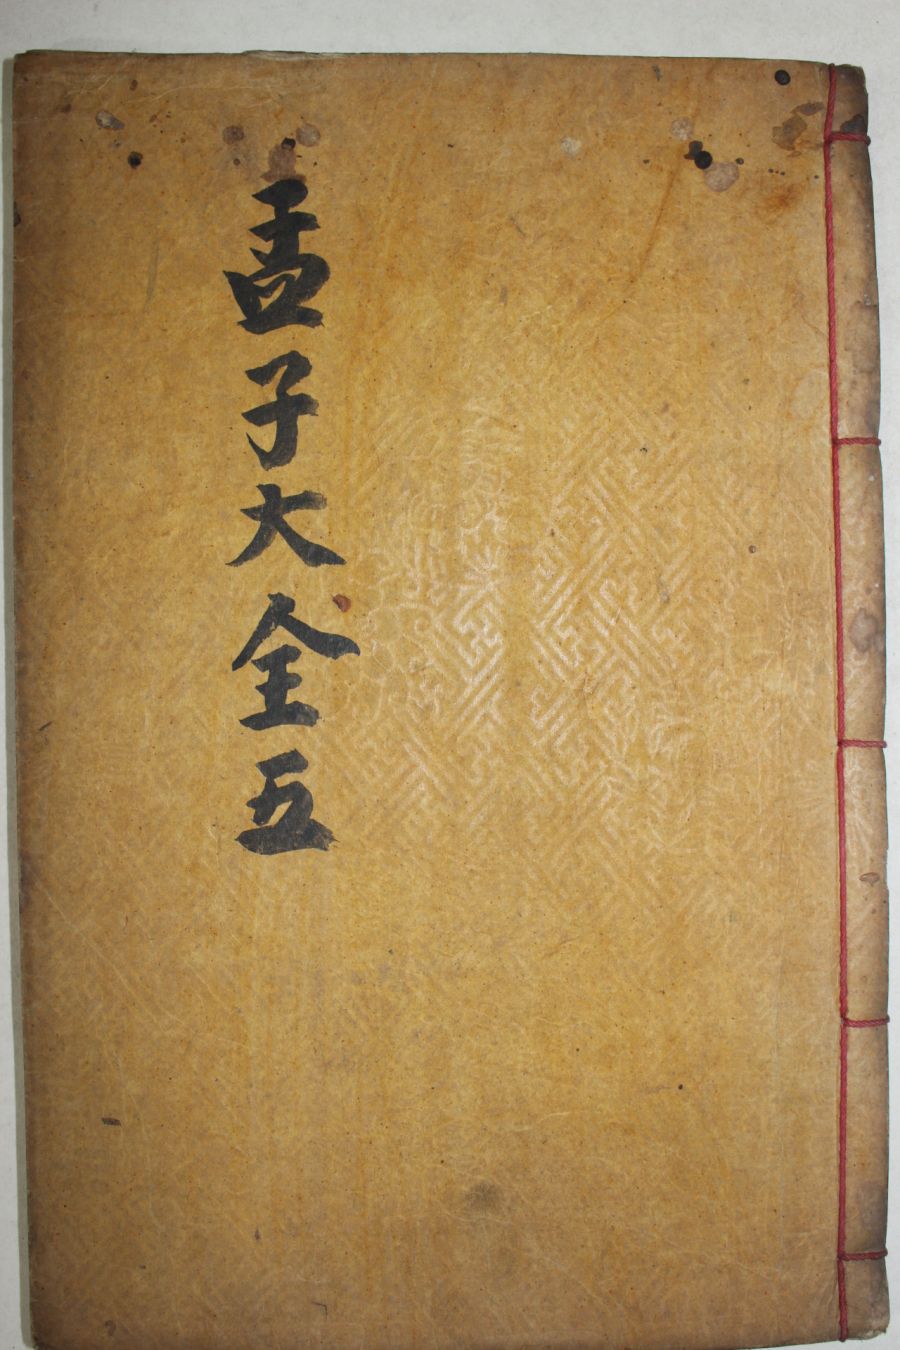 孟子大全五